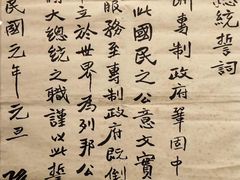 總統誓詞
專制政府鞏固中
此國民之公意文實
服務至專制政府既倒
立於世界為列邦公
大總統之職謹以此誓
民國元年元旦 孫